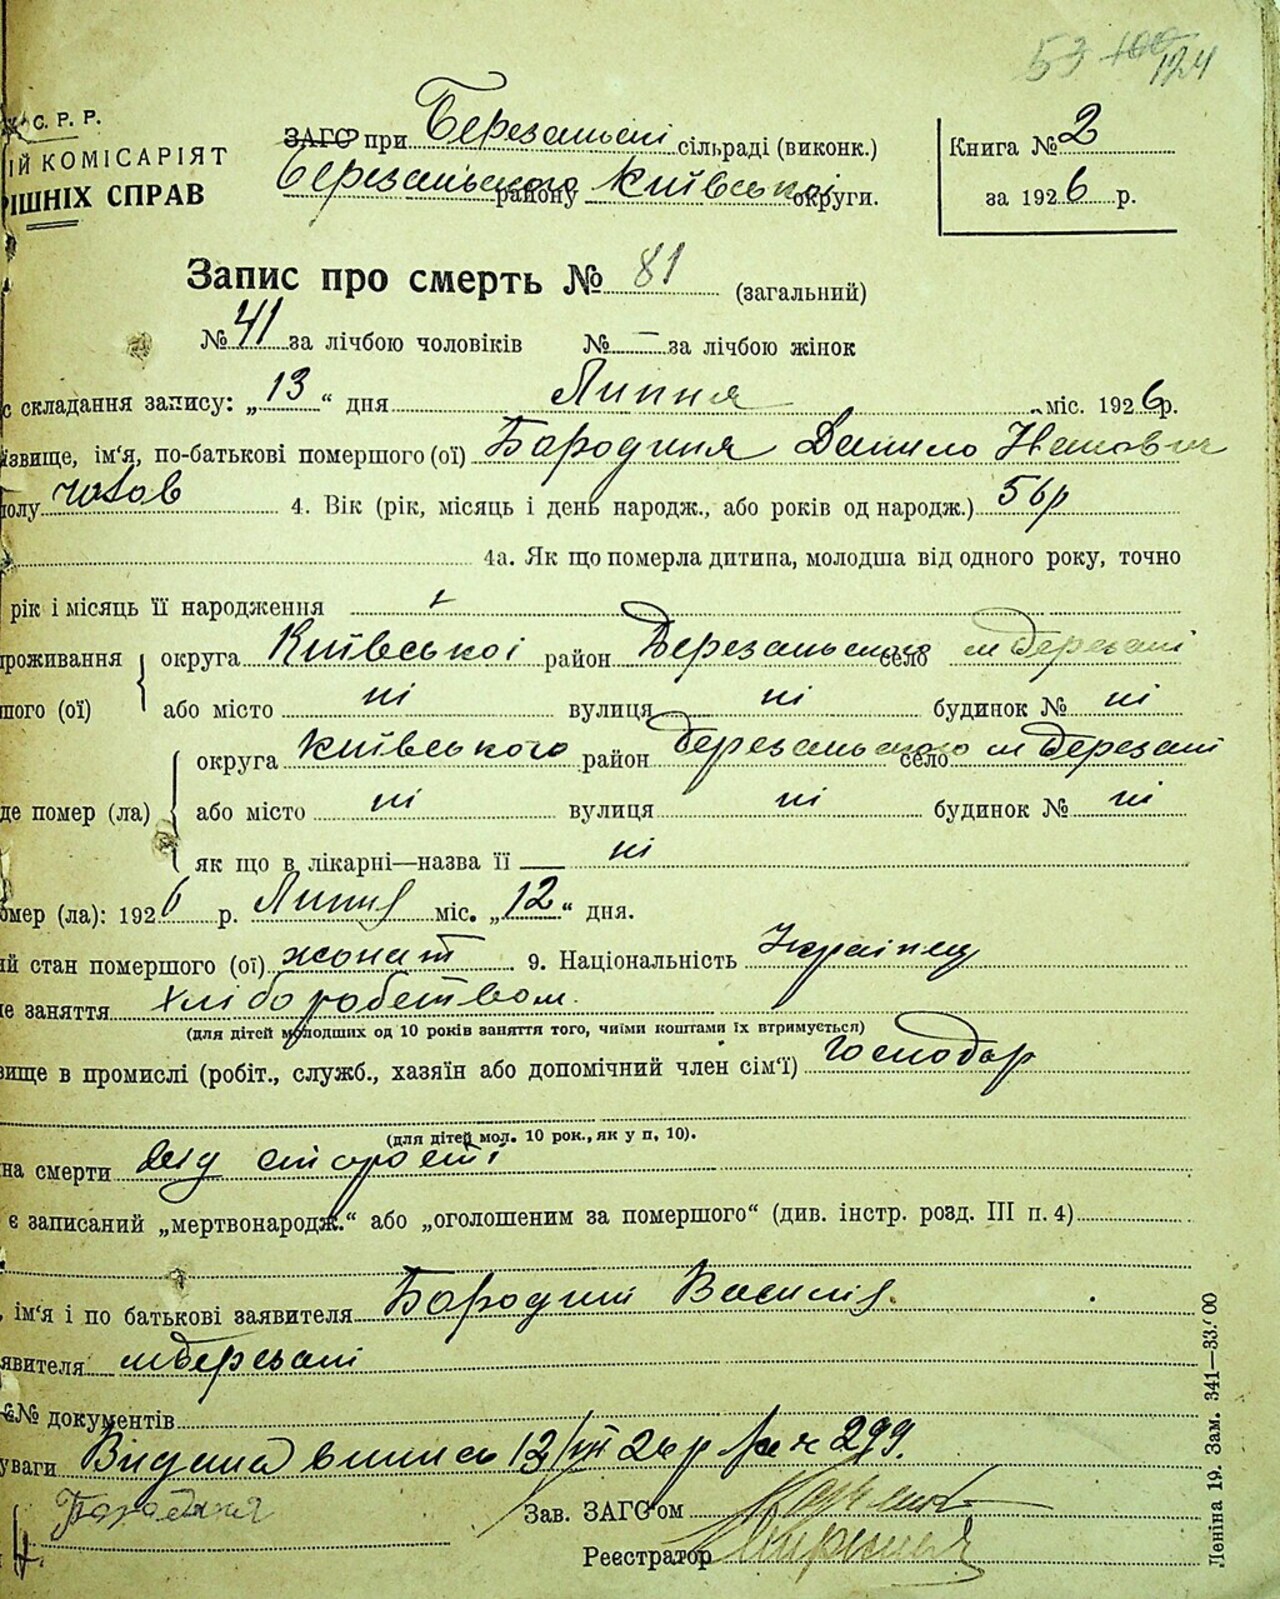 53 100 124
С. Р. Р.
ІЙ КОМІСАРІЯТ
ІШНІХ СПРАВ
ЗАГС при Березаньскі сільраді (виконк.)
Березаньского району Київської округи.
Книга № 2
за 1926 р.
Запис про смерть № 81 (загальний)
№ 41 за лічбою чоловіків № — за лічбою жінок
с складання запису: „13“ дня Липня міс. 1926 р.
ізвище, ім'я, по-батькові помершого (ої) Бародиня Данило Іванович
полу чолов 4. Вік (рік, місяць і день народж., або років од народж.) 56 р
4а. Як що померла дитина, молодша від одного року, точно
рік і місяць її народження
роживання округа Київської район Березаньского село м Березані
шого (ої) або місто ні вулиця ні будинок № ні
округа Київського район Березаньского село м Березані
де помер (ла) або місто ні вулиця ні будинок № ні
як що в лікарні—назва її ні
омер (ла): 1926 р. Липня міс. „12“ дня.
ий стан помершого (ої) жонат 9. Національність Українец
не заняття хліборобством.
(для дітей молодших од 10 років заняття того, чиїми коштами їх втримується)
вище в промислі (робіт., служб., хазяїн або допомічний член сім'ї) Господар
(для дітей мол. 10 рок., як у п, 10).
на смерти від старості
є записаний „мертвонародж.“ або „оголошеним за помершого“ (див. інстр. розд. III п. 4)
, ім'я і по батькові заявителя Бородиній Василій.
явителя м Березані
№№ документів
уваги Видана випись 13/VII 26 р за № 299.
Бародиня Зав. ЗАГС'ом
Реєстратор
Леніна 19. Зам. 341—33.000